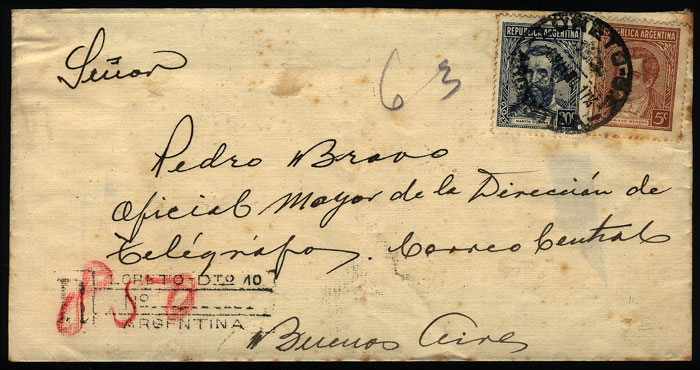 REPUBLICA ARGENTINA
20c
REPUBLICA ARGENTINA
5c
63
Señor
Pedro Bravo
Oficial Mayor de la Dirección de
Telégrafos. Correo Central
LORETO-DTO 10
No
ARGENTINA
Buenos Aires